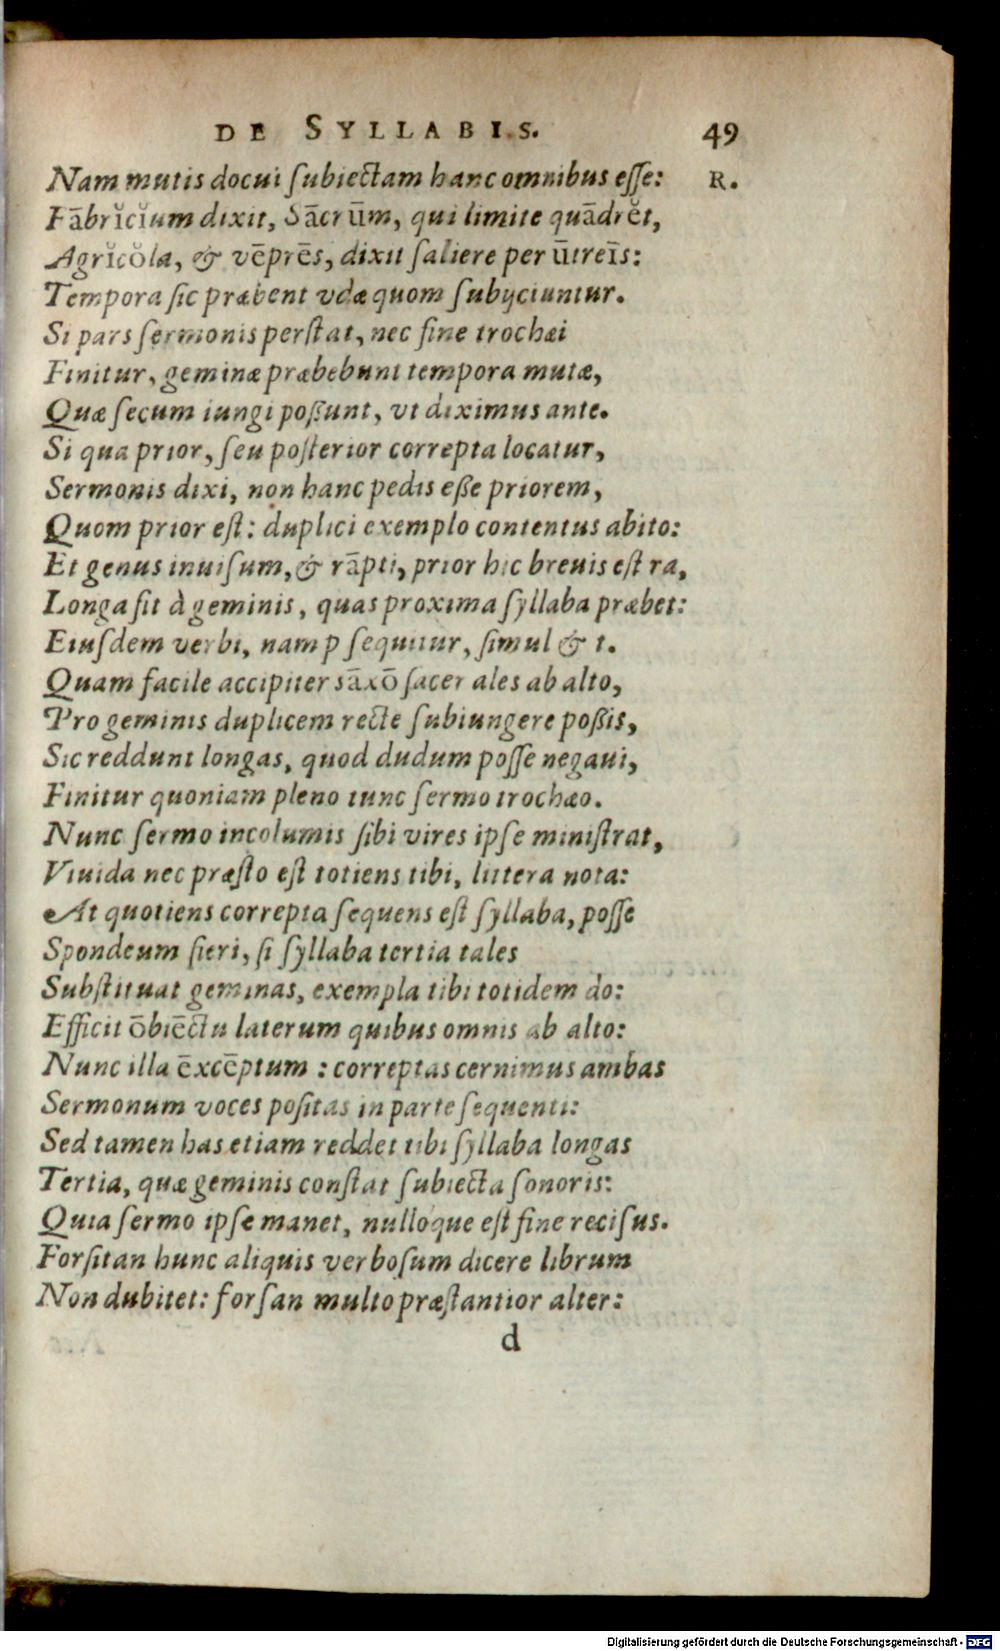 DE SYLLABIS. 49
Nam mutis docui ſubiectam hanc omnibus eſſe: R.
Fābrĭcĭum dixit, Sācrūm, qui limite quādrĕt,
Agrĭcŏla, & vēprēs, dixit ſaliere per ūtreīs:
Tempora ſic præbent vdæ quom ſubijciuntur.
Si pars ſermonis perſtat, nec ſine trochæi
Finitur, geminæ præbebunt tempora mutæ,
Quæ ſecum iungi poßunt, vt diximus ante.
Si qua prior, ſeu poſterior correpta locatur,
Sermonis dixi, non hanc pedis eße priorem,
Quom prior eſt: duplici exemplo contentus abito:
Et genus inuiſum, & rāpti, prior hic breuis eſt ra,
Longa fit à geminis, quas proxima ſyllaba præbet:
Eiuſdem verbi, nam p ſequitur, ſimul & t.
Quam facile accipiter sāxō ſacer ales ab alto,
Pro geminis duplicem recte ſubiungere poßis,
Sic reddunt longas, quod dudum poſſe negaui,
Finitur quoniam pleno tunc ſermo trochæo.
Nunc ſermo incolumis ſibi vires ipſe miniſtrat,
Viuida nec præſto eſt totiens tibi, littera nota:
At quotiens correpta ſequens eſt ſyllaba, poſſe
Spondeum fieri, ſi ſyllaba tertia tales
Subſtituat geminas, exempla tibi totidem do:
Efficit ōbiēctu laterum quibus omnis ab alto:
Nunc illa ēxcēptum : correptas cernimus ambas
Sermonum voces poſitas in parte ſequenti:
Sed tamen has etiam reddet tibi ſyllaba longas
Tertia, quæ geminis conſtat ſubiecta ſonoris:
Quia ſermo ipſe manet, nulloque eſt fine reciſus.
Forſitan hunc aliquis verboſum dicere librum
Non dubitet: forſan multo præſtantior alter:
d
Digitalisierung gefördert durch die Deutsche Forschungsgemeinschaft - DFG